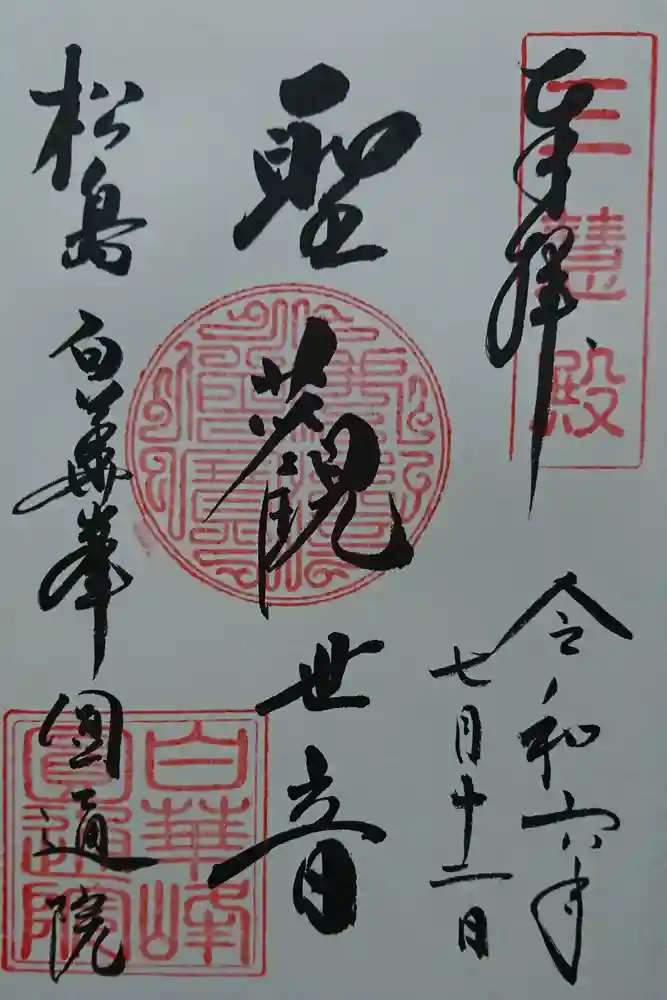 奉拝
三慧殿
令和六年
七月十二日
聖観世音
松島 白華峯 圓通院
白華峰
圓通院